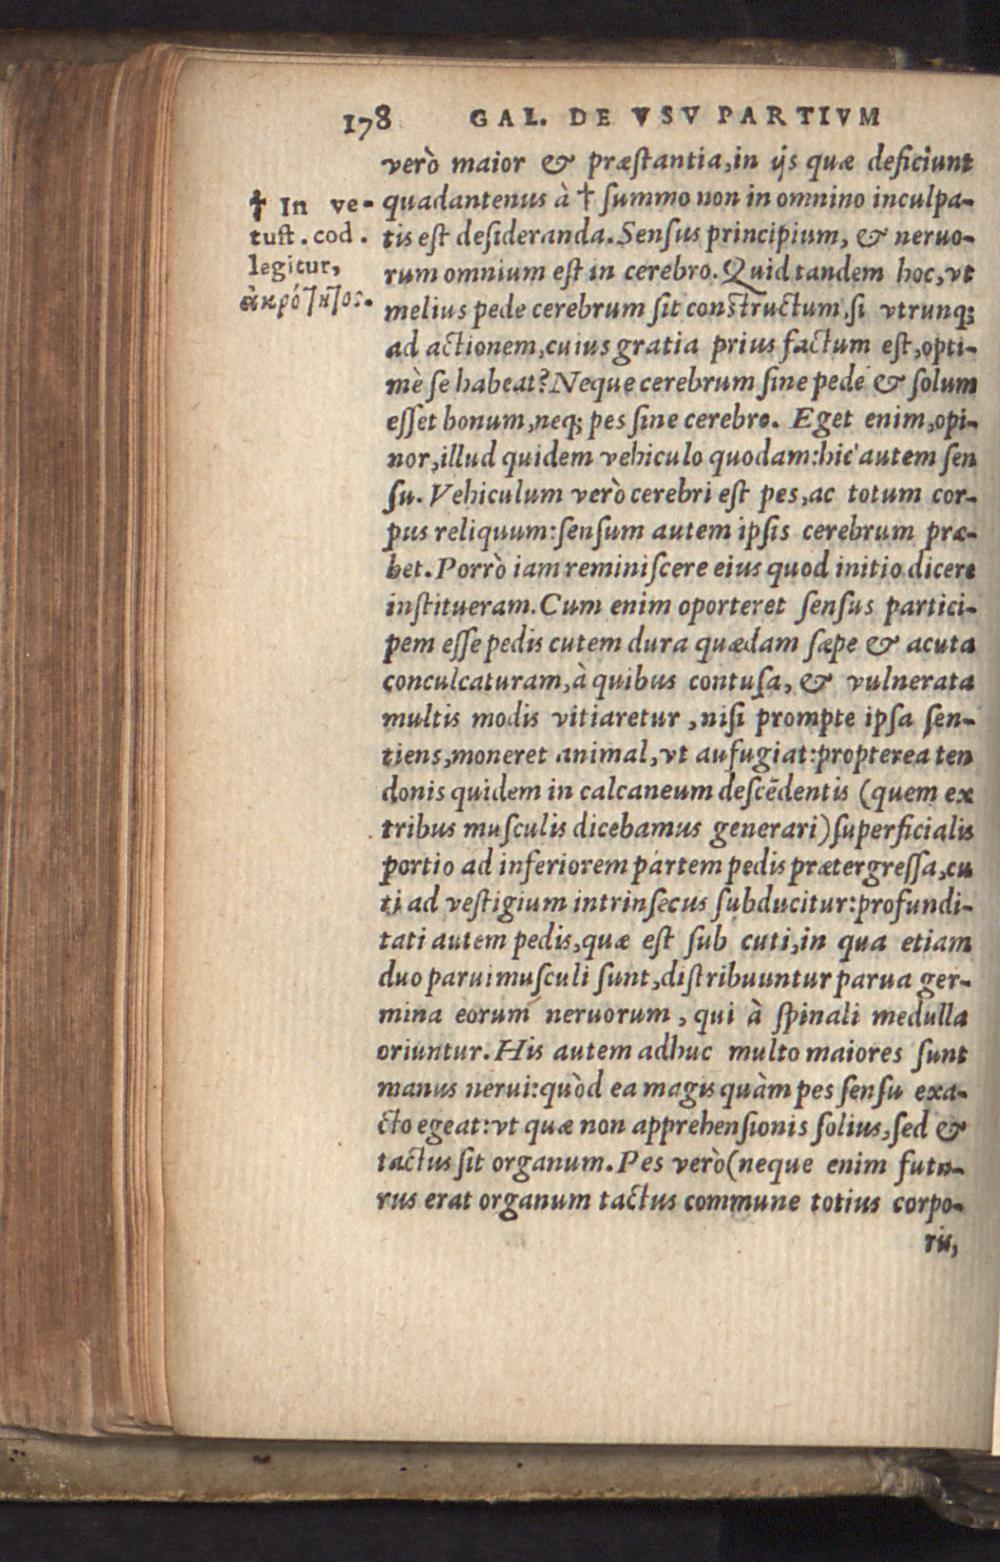 178 GAL. DE VSV PARTIVM
verò maior & præſtantia,in ijs quæ deficiunt
quadantenus à † ſummo non in omnino inculpa-
tis eſt deſideranda.Senſus principium, & neruo-
rum omnium eſt in cerebro.Quid tandem hoc,vt
melius pede cerebrum ſit constructum,ſi vtrunq;
ad actionem,cuius gratia prius factum eſt,opti-
mè ſe habeat?Neque cerebrum ſine pede & ſolum
eſſet bonum,neq; pes ſine cerebro. Eget enim,opi-
nor,illud quidem vehiculo quodam:hic autem ſen
ſu. Vehiculum verò cerebri eſt pes,ac totum cor-
pus reliquum:ſenſum autem ipſis cerebrum præ-
bet.Porrò iam reminiſcere eius quod initio dicere
inſtitueram.Cum enim oporteret ſenſus partici-
pem eſſe pedis cutem dura quædam ſæpe & acuta
conculcaturam,à quibus contuſa, & vulnerata
multis modis vitiaretur ,niſi prompte ipſa ſen-
tiens,moneret animal,vt aufugiat:propterea ten
donis quidem in calcaneum deſcēdentis (quem ex
tribus muſculis dicebamus generari)ſuperficialis
portio ad inferiorem partem pedis prætergreſſa,cu
ti ad veſtigium intrinſecus ſubducitur:profundi-
tati autem pedis,quæ eſt ſub cuti,in qua etiam
duo parui muſculi ſunt,diſtribuuntur parua ger-
mina eorum neruorum , qui à ſpinali medulla
oriuntur.His autem adhuc multo maiores ſunt
manus nerui:quòd ea magis quàm pes ſenſu exa-
cto egeat:vt quæ non apprehenſionis ſolius,ſed &
tactus ſit organum.Pes verò(neque enim futu-
rus erat organum tactus commune totius corpo-
ris,
† In ve-
tuſt. cod.
legitur,